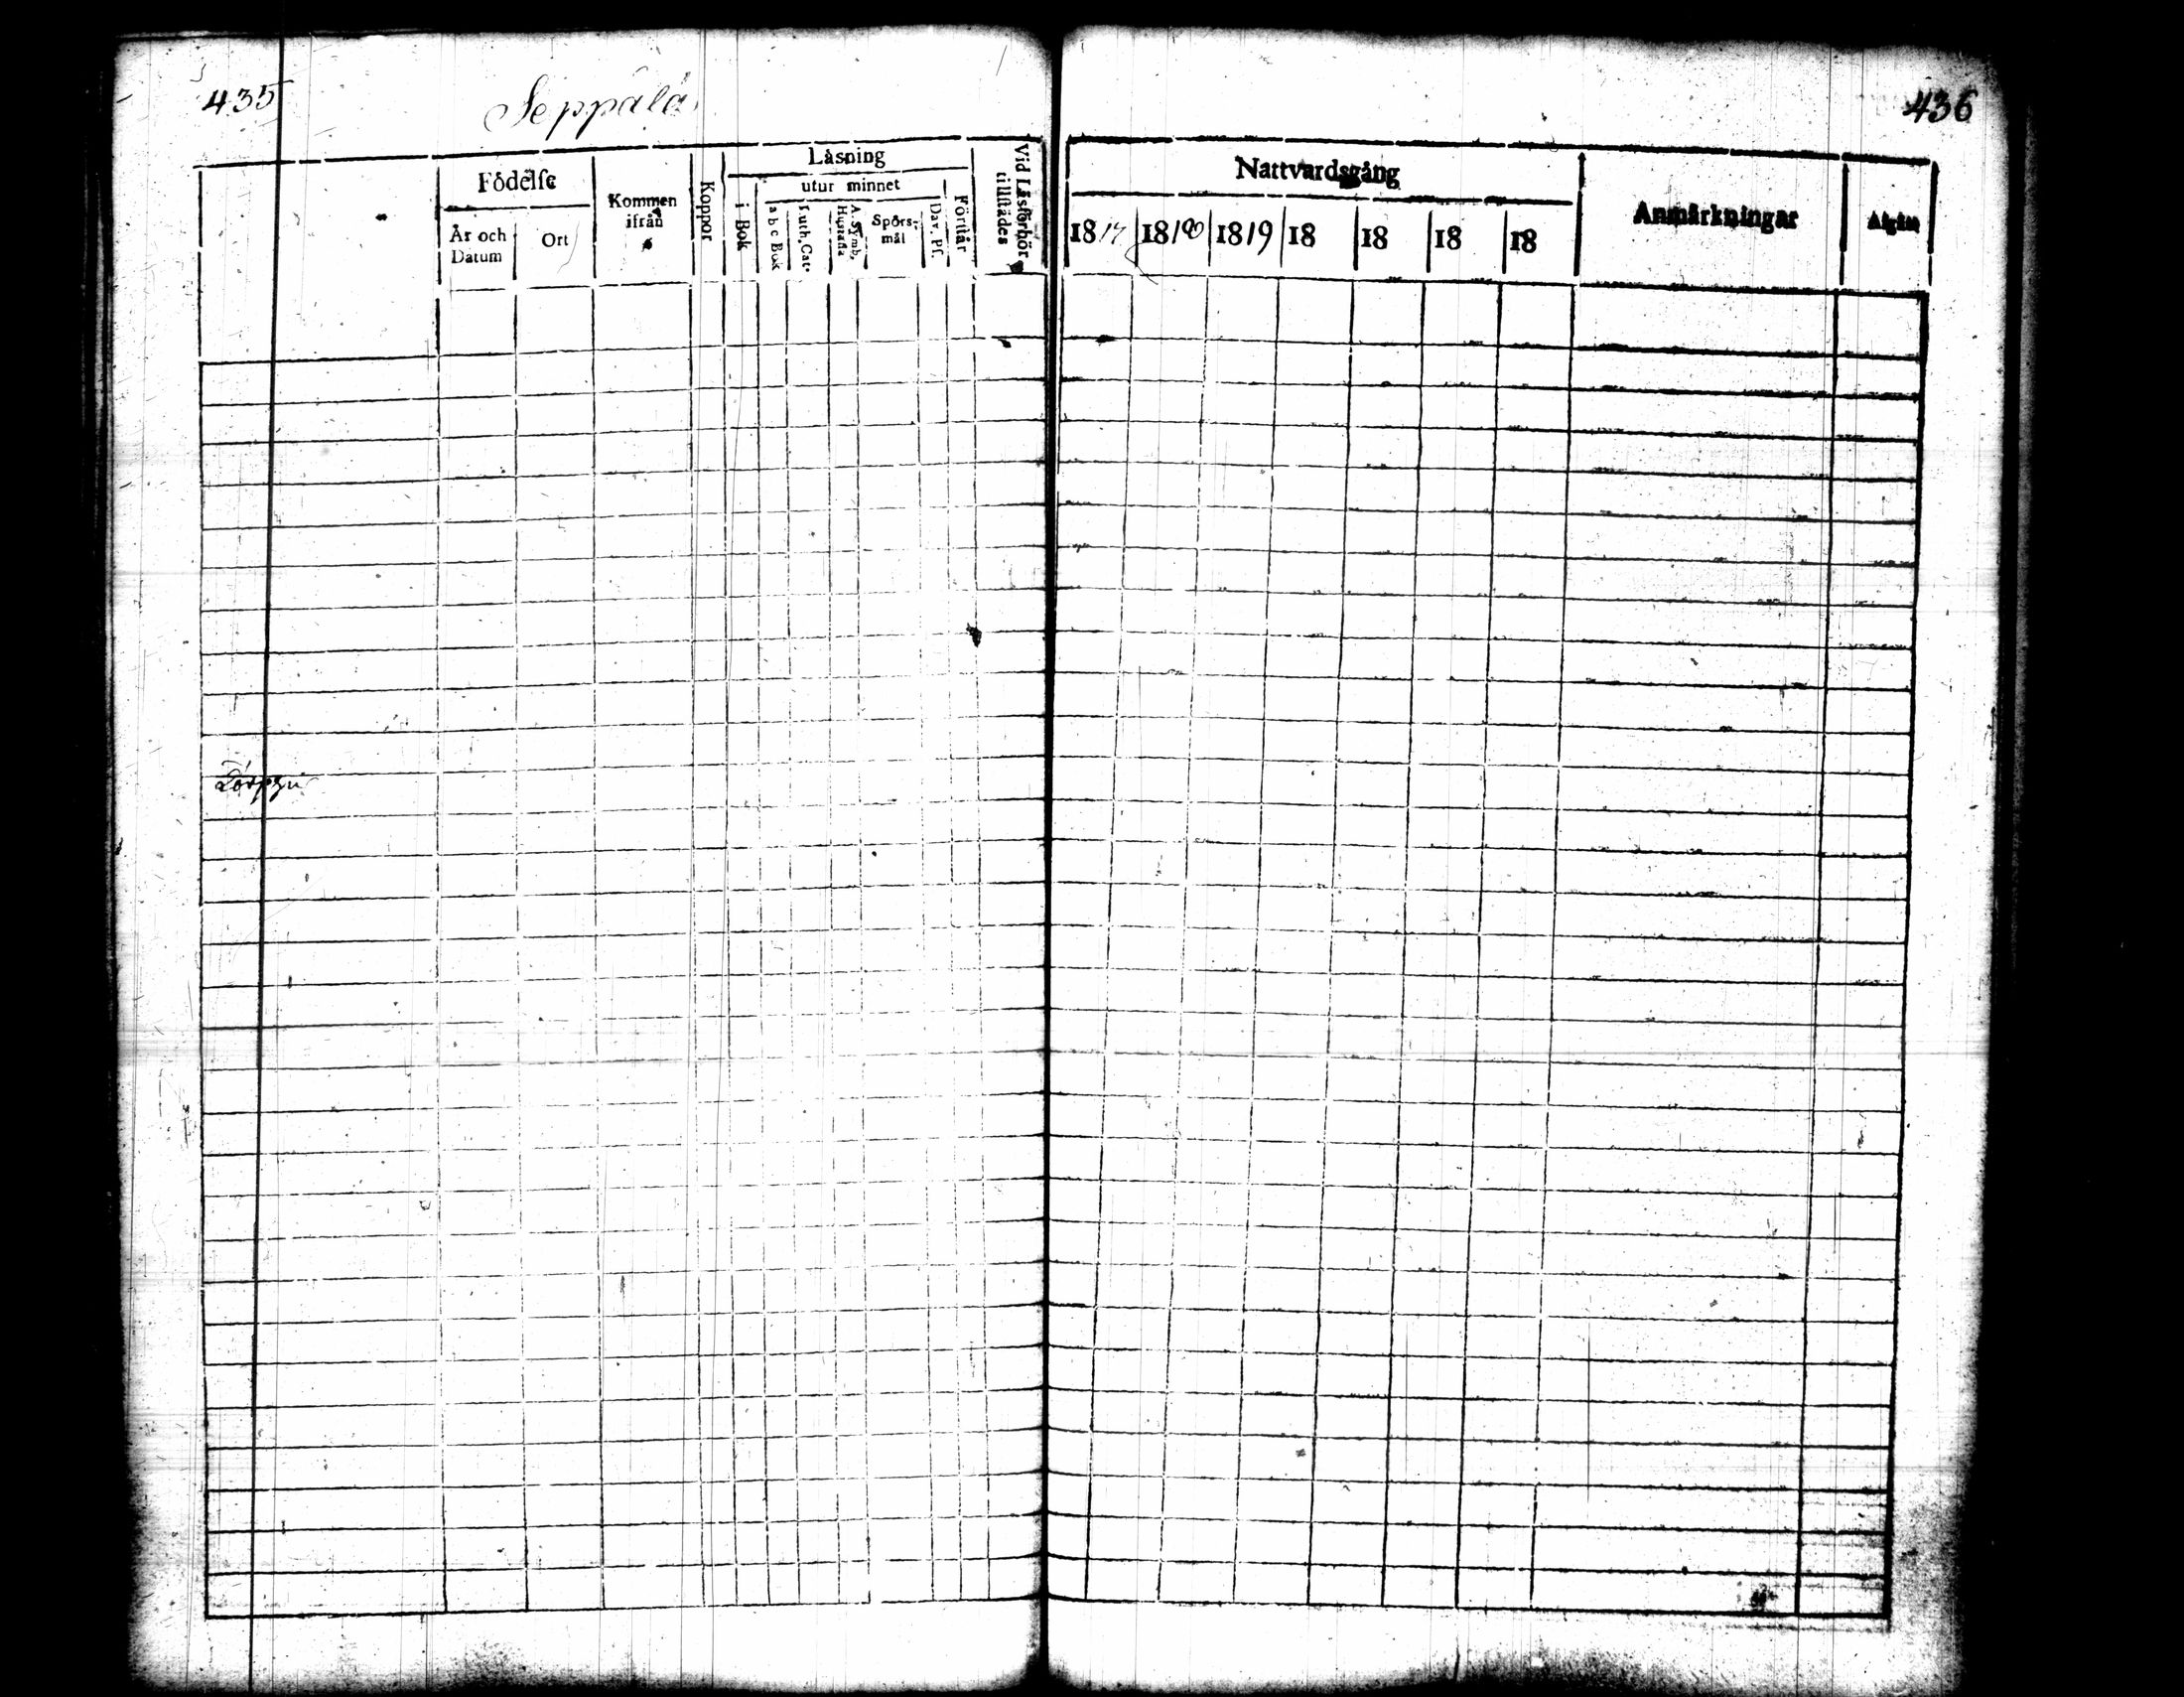 435
Seppälä
436
Födelse
År och Datum
Ort
Kommen ifrån
Koppor
Läsning
i Bok
utur minnet
a b c Bok
Luth. Cat.
A. Symb. Hustafla
Spörsmål
Dav. Ps.
Förstår
Vid Läsförhör tillstädes
Nattvardsgång
1817
1818
1819
18
18
18
18
Anmärkningar
Afgått